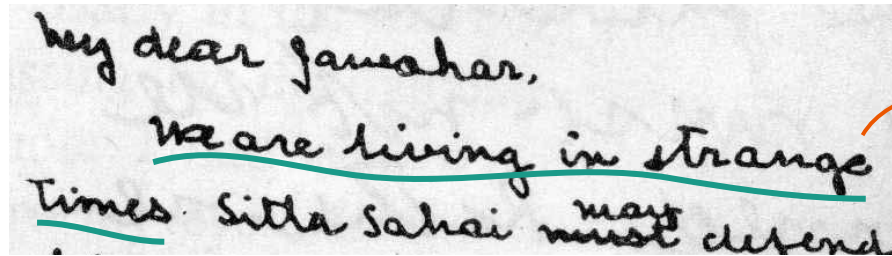 My dear Jawahar,
We are living in strange
times. Sitla Sahai may defend